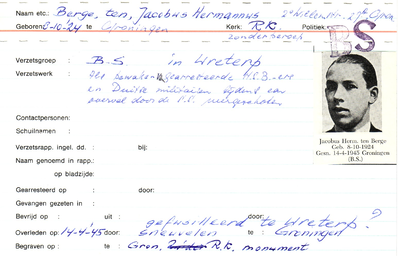 Naam etc.: Berge, ten, Jacobus Hermannus
Geboren: 8-10-24 te Groningen Kerk: R.K. Politiek
zonder beroep
BS
Verzetsgroep : B.S. in Ureterp
Verzetswerk :
en Duitse militairen tijdens een
overval door de
Jacobus Herm. ten Berge
Geb. 8-10-1924
Gesn. 14-4-1945 Groningen
(B.S.)
Contactpersonen:
Schuilnemen :
Verzetsrapp. ingel. dd. : bij:
Naam genoemd in rapp.:
op bladzijde:
Gearresteerd op : door:
Gevangen gezeten in :
Bevrijd op : uit : door:
gefusilleerd te Ureterp?
Overleden op : 14-4-'45 door: sneuvelen te Groningen
Begraven op : te: Gron. R.K. monument